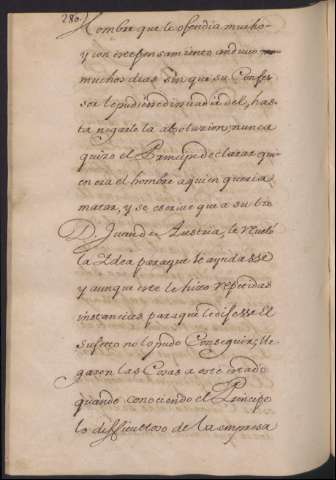 280.
Hombre que le ofendia mucho
y con este pensamiento anduvo
muchos dias sin que su Confes
sor le pudiese disuadir del, has
ta negarle la absolucion, nunca
quizo el Principe declarar qui
en era el hombre a quien queria
matar, y se escrive que a su tio
D. Juan de Austria, le revelò
la Idea para que le ayudasse
y aunque este le hizo repetidas
instancias para que le disesse el
sujetto no lo pudo Conseguir, lle
garon las Cosas a este estado
quando conociendo el Principe
lo difficultoso de la empresa